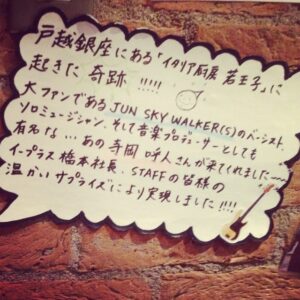 戸越銀座にある「イタリア厨房 若王子」に
起きた 奇跡 !!!!!
大ファンである JUN SKY WALKER(S)のベーシスト、
ソロミュージシャン、そして音楽プロデューサーとしても
有名な… あの寺岡 呼人さんが来てくれました〜〜
イープラス橋本社長、STAFFの皆様の
温かいサプライズにより実現しました!!!!